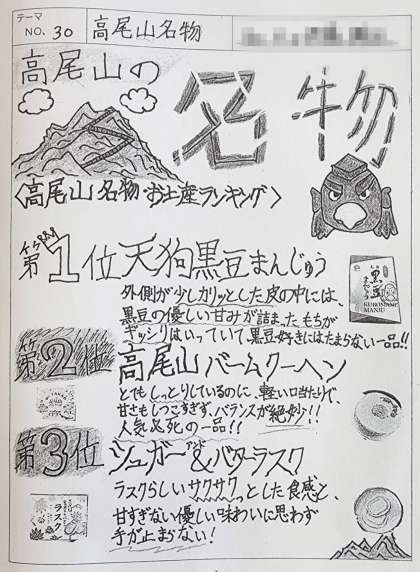 テーマ
NO. 30 高尾山名物
高尾山の
名物
〈高尾山名物お土産ランキング〉
第1位 天狗黒豆まんじゅう
外側が少しカリッとした皮の中には、
黒豆の優しい甘みが詰まったもちが
ギッシリはいっていて、黒豆好きにはたまらない一品!!
黒豆
まんじゅう
KUROMAME
MANJU
第2位 高尾山バームクーヘン
とてもしっとりしているのに、軽い口当たりで、
甘さもしつこすぎず、バランスが絶妙!!
人気必死の一品!!
第3位 シュガー&バターラスク
アンド
ラスクらしいサクサクっとした食感と、
甘すぎない優しい味わいに思わず
手が止まらない!
ラスク